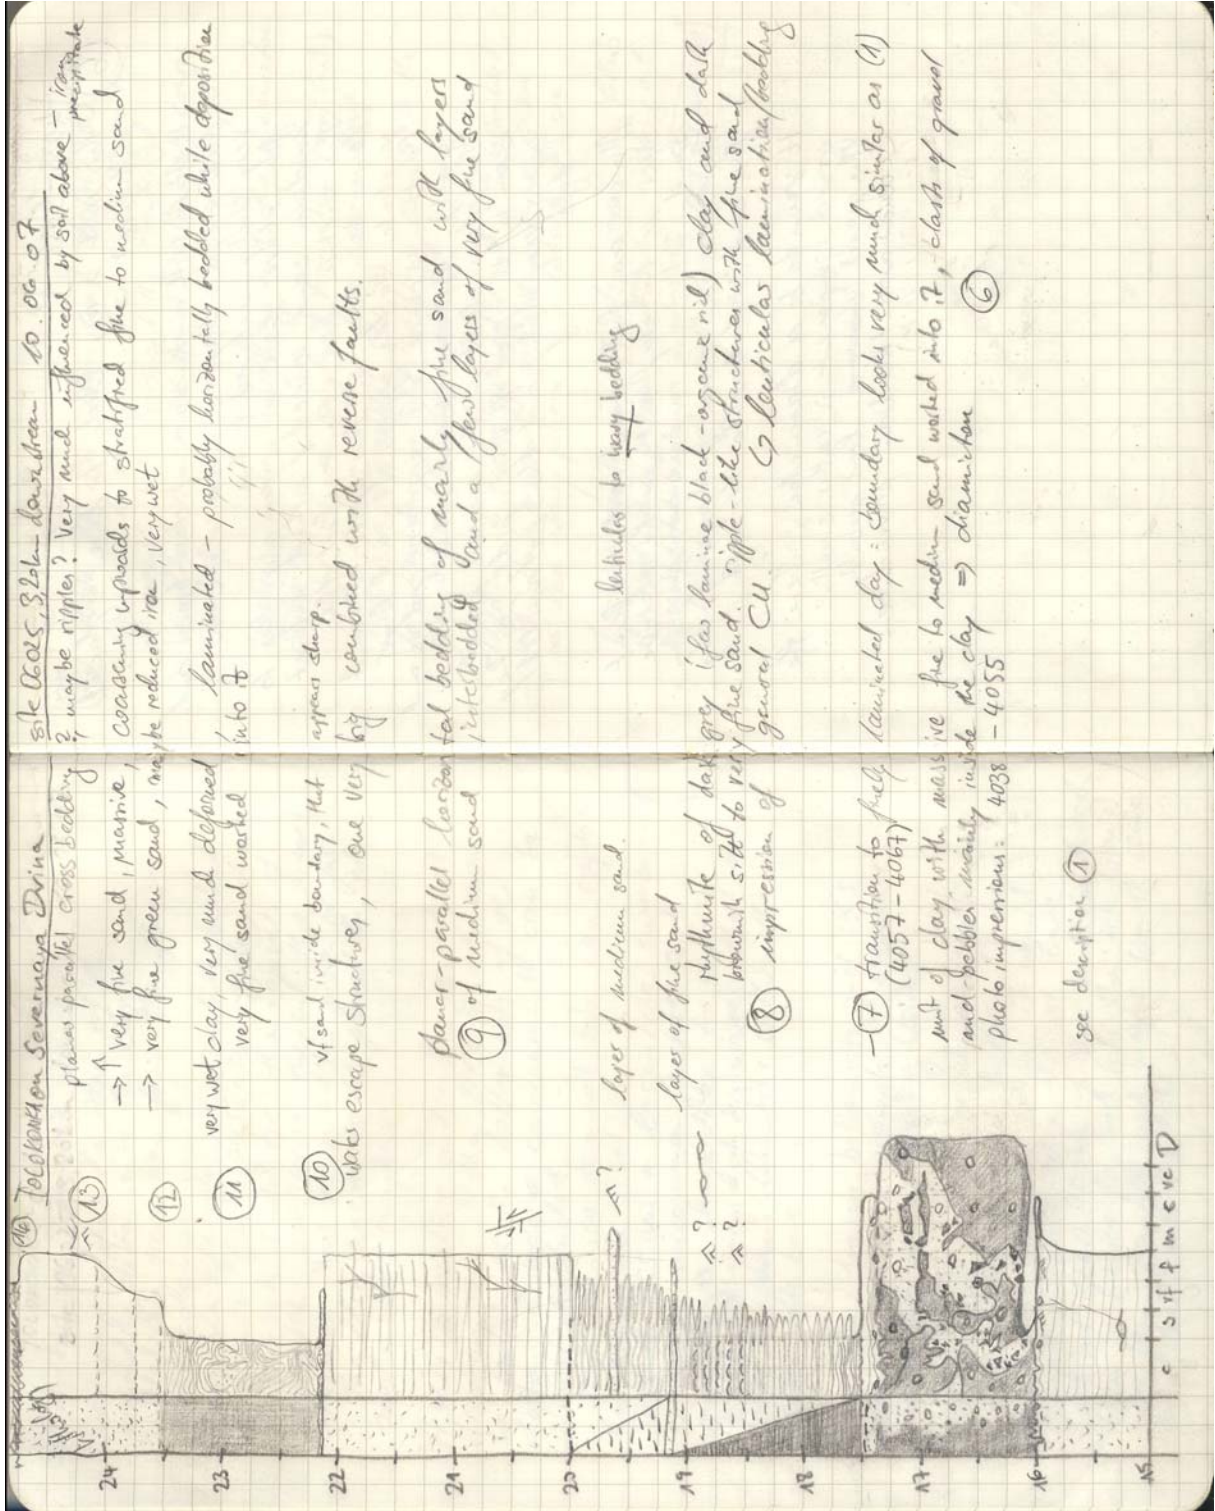 (14) TOLOKONKA on Severnaya Dvina site 06025, 3,20km downstream 10.06.07
planar parallel cross bedding ?, maybe ripples? Very much influenced by soil above – iron precipitate
(13) → ↑ very fine sand, massive, coarsening upwards to stratified fine to medium sand
(12) → very fine green sand, maybe reduced iron, very wet
(11) very wet clay, very much deformed, laminated – probably horizontally bedded while deposition
very fine sand washed into it
(10) vf sand inside boundary, that appears sharp.
water escape structures, one very big combined with reverse faults.
planar-parallel horizontal bedding of mainly fine sand with layers
(9) of medium sand interbedded and a few layers of very fine sand
⩓? layer of medium sand. lenticular to wavy bedding
layer of fine sand
⩓? rhythmite of dark grey (few laminae black - organic rich) clay and dark
⩓? brownish silt to very fine sand. ripple-like structures with fine sand
(8) impression of general CU. ↳ lenticular lamination/bedding
– (7) transition to finely laminated clay: boundary looks very much similar as (1)
(4057 – 4067)
unit of clay with massive fine to medium sand washed into it, clasts of gravel
and pebbles mainly inside the clay ⇒ diamicton (6)
photo impressions: 4038 – 4055
see description (1)
24
23
22
21
20
19
18
17
16
15
c s vf f m c vc D